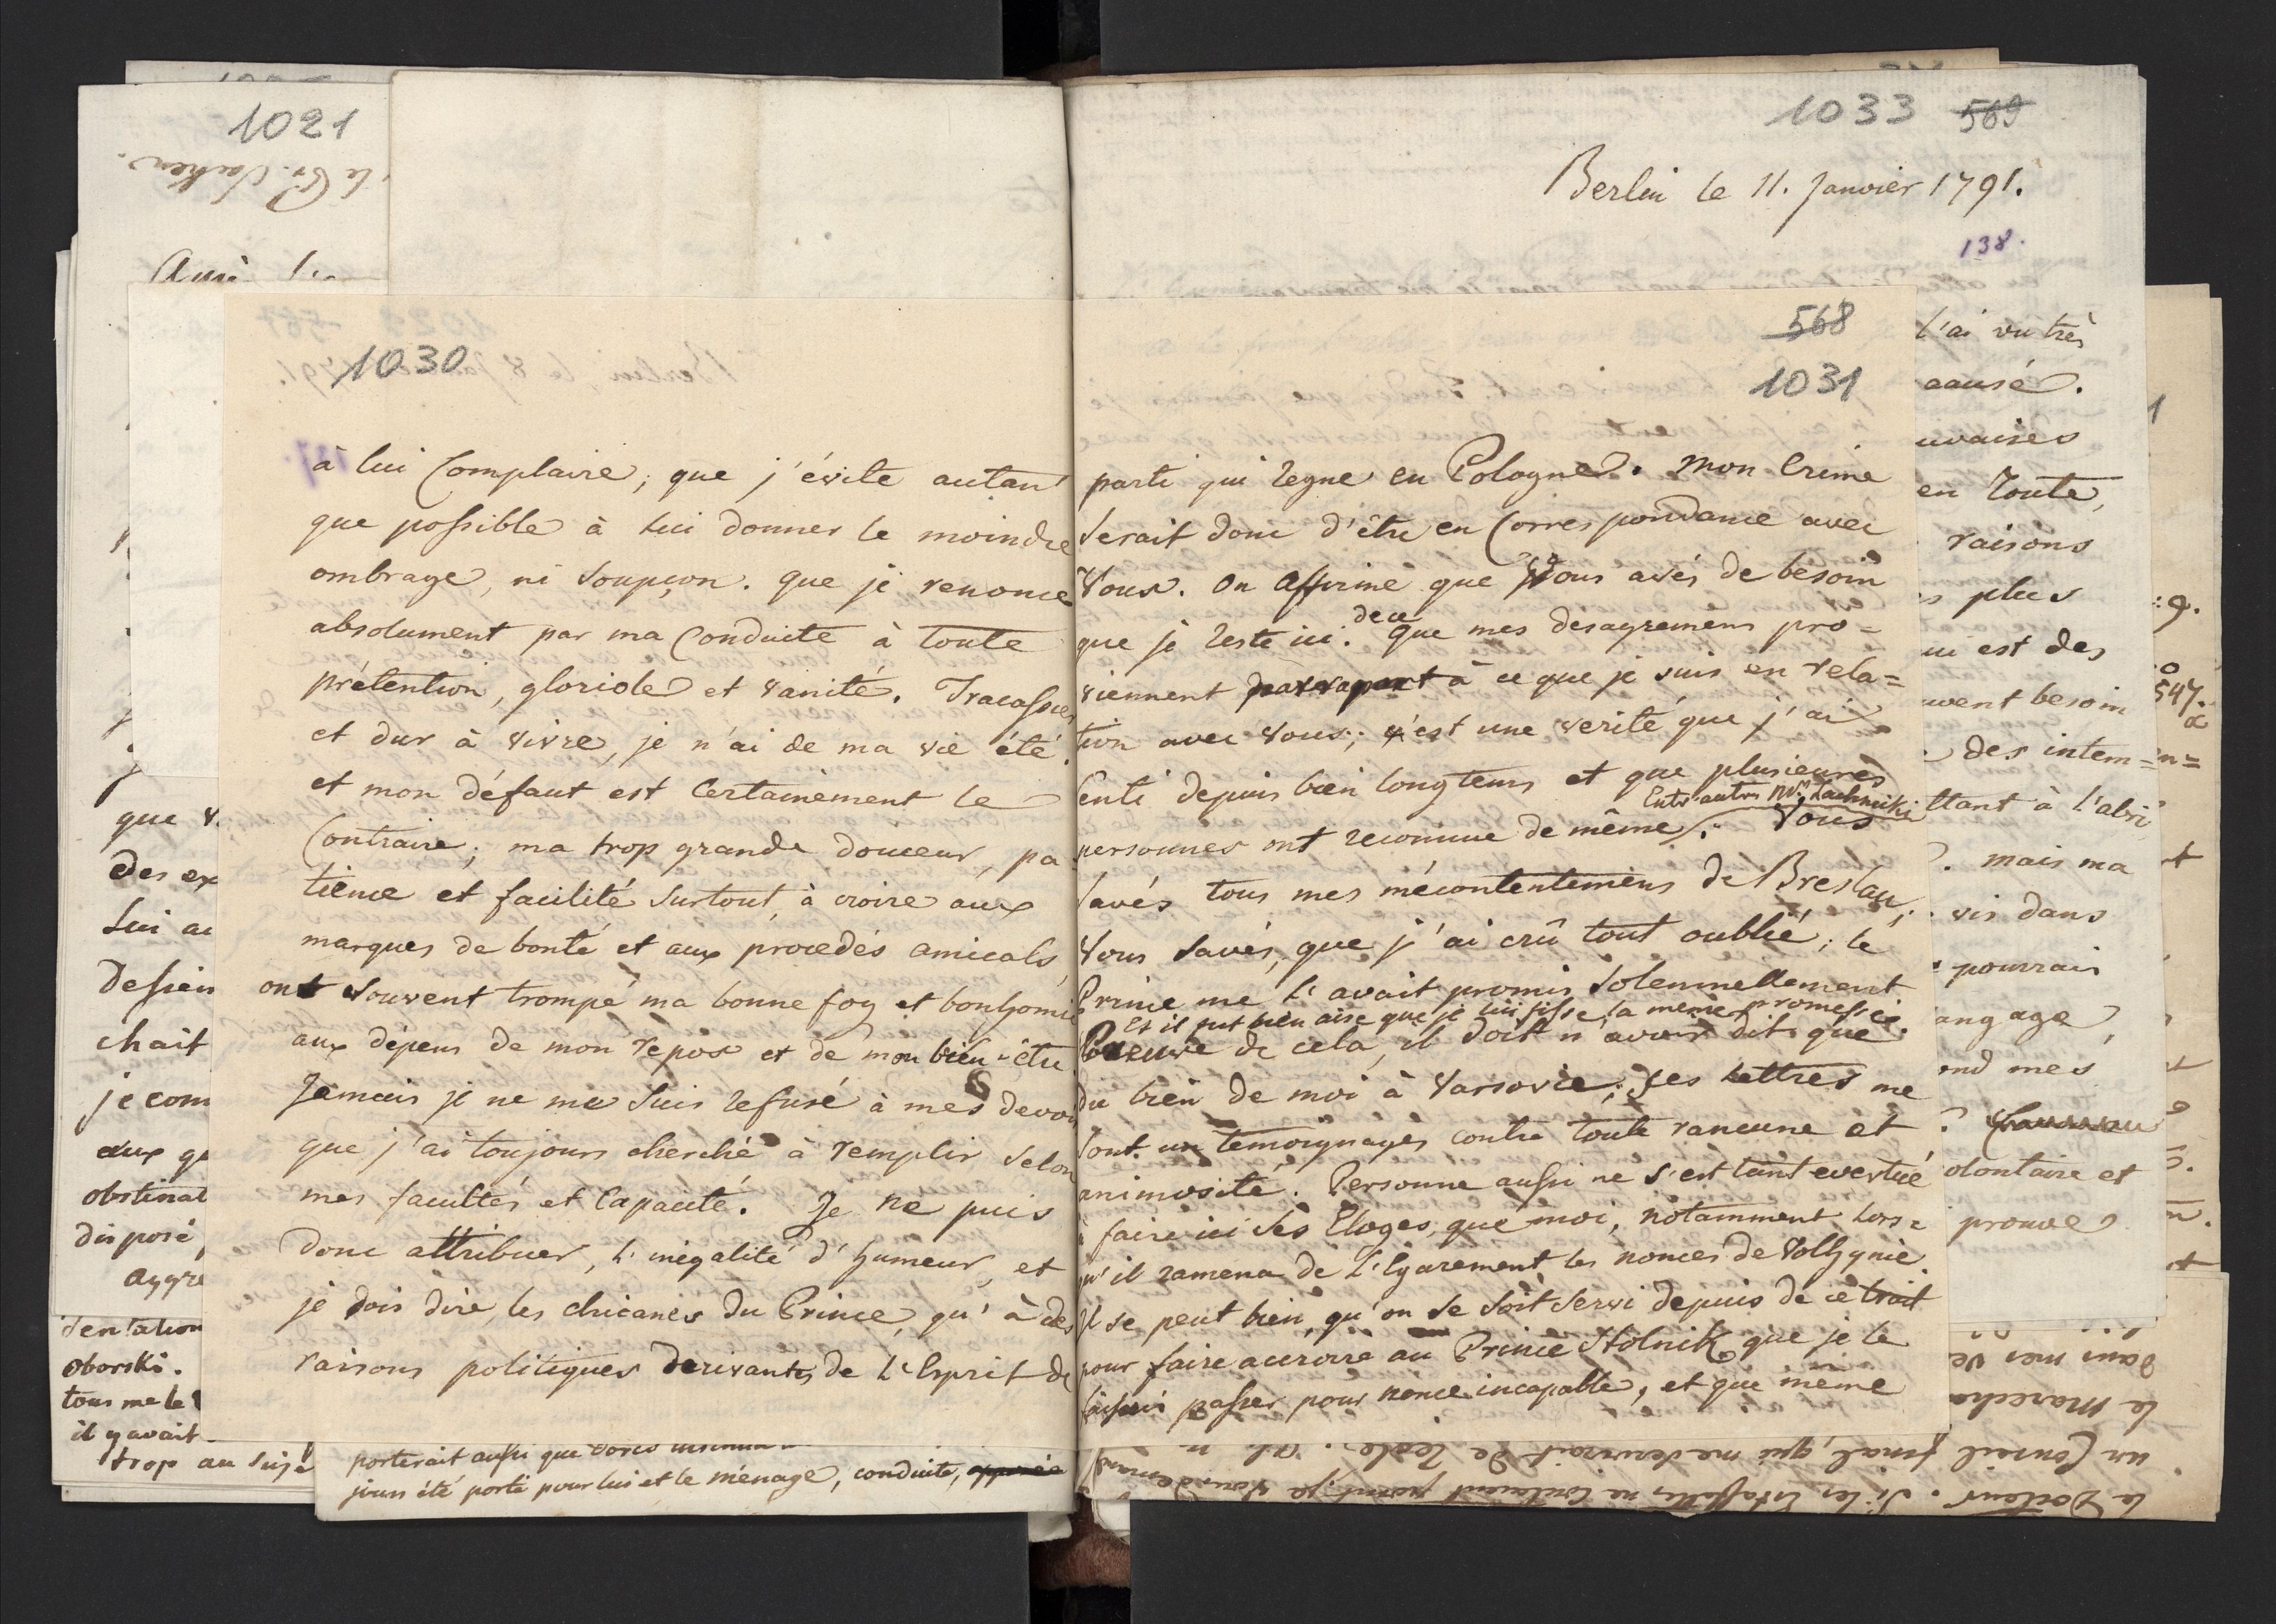 1021
le Cte. Sacken.
Ami
1030
à lui Complaire; que j'évite autant
que possible à lui donner le moindre
ombrage, ni soupçon. que je renonce
absolument par ma Conduite à toute
prétention, gloriole et vanité. Tracassier
et dur à vivre, je n'ai de ma vie été.
et mon défaut est certainement le
Contraire; ma trop grande douceur, pa-
tience et facilité surtout, à croire aux
marques de bonté et aux procedés amicals,
ont souvent trompé ma bonne foy et bonhomie
aux dépens de mon repos et de mon bien-être.
Jamais je ne me suis refusé à mes devoirs
que j'ai toujours cherché à remplir selon
mes facultés et Capacité. Je ne puis
donc attribuer, l'inégalité d'humeur, et
je dois dire, les chicanes du Prince, qu'à des
raisons politiques derivantes de l'Esprit de
que v.
des ex
lui au
Dessein
chait
je com
aux qu
obstinat
disposé,
aggre
sentation
oborski.
tous me le
il y avait
trop au suje
porterait aussi que
jours été porté pour lui et le ménage, conduite,
1033 569
Berlin le 11. Janvier 1791.
138.
568
1031
parti qui regne en Pologne. Mon Crime
serait donc d'être en Correspondance avec
Vous. On affirme que Vous avés de besoin
que je reste ici. de ce que mes desagremens pro=
viennent à ce que je suis en rela=
tion avec vous; c'est une verité que j'ai
senti depuis bien longtems et que plusieures
Entr'autres Mr. Zachnicki
personnes ont reconnue de même. Vous
savés tous mes mécontentemens de Breslau;
Vous savés, que j'ai crû tout oublié; le
Prince me l'avait promis solemnellement
Et il fut bien aise que je lui fisse la même promesse.
Preuve de cela, il doit n'avoir dit que
du bien de moi à Varsovie; ses lettres me
sont un temoignages contre toute rancune et
animosité. Personne aussi ne s'est tant evertué
à faire ici ses Eloges, que moi, notamment lors=
qu'il ramena de l'Egarement les nonces de Volhynie.
Il se peut bien, qu'on se soit servi depuis de ce trait
pour faire accroire au Prince Stolnik, que je le
faisais passer pour nonce incapable, et que même
l'ai vu très
causé.
uvaises
en toute,
raisons
s plus
ui est des
uvent besoin
des intem=
ttant à l'abri
. mais ma
vis dans
pourrais
angage,
end mes
olontaire et
prouve
:9.
547.
n=
dans mes de
le Marecha
un Conseil final, qui me servirait de Regle.
le Docteur. Si les Estaffettes ne coutaient